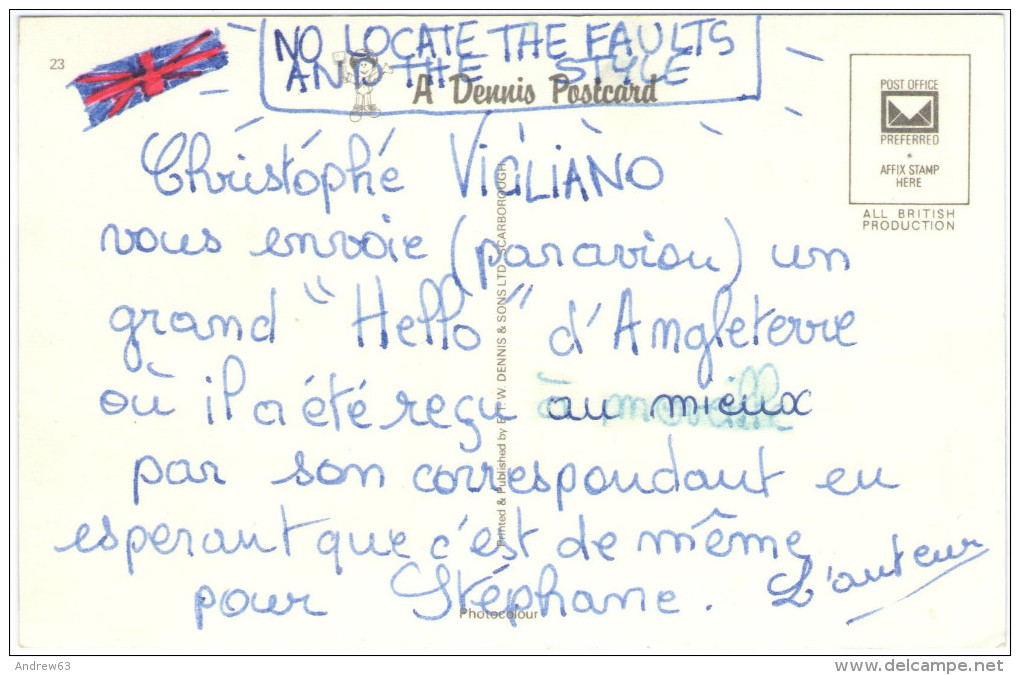 23
NO LOCATE THE FAULTS
AND THE STYLE
A Dennis Postcard
POST OFFICE
PREFERRED
AFFIX STAMP
HERE
ALL BRITISH
PRODUCTION
Christóphé VICILIANO
vous envoie (par avion) un
grand "Hello" d'Angleterre
où il a été reçu au mieux
par son correspondant en
esperant que c'est de même
pour Stéphane. L'auteur
Printed & Published by E. T. W. DENNIS & SONS LTD., SCARBOROUGH
Photocolour
Andrew63
delcampe.net